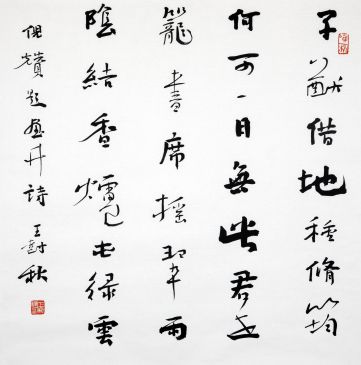 子猷借地種脩筠
何可一日無此君葉
籠書席搖翠雨
陰結香爐屯綠雲
倪瓚題畫竹詩 王秋